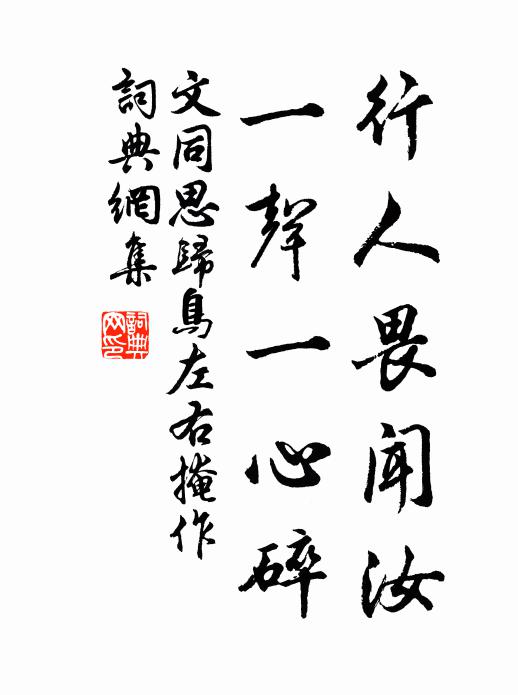 行人畏聞汝
一聲一心碎
文同思歸鳥左右掩作
詞典網集
詞典網印